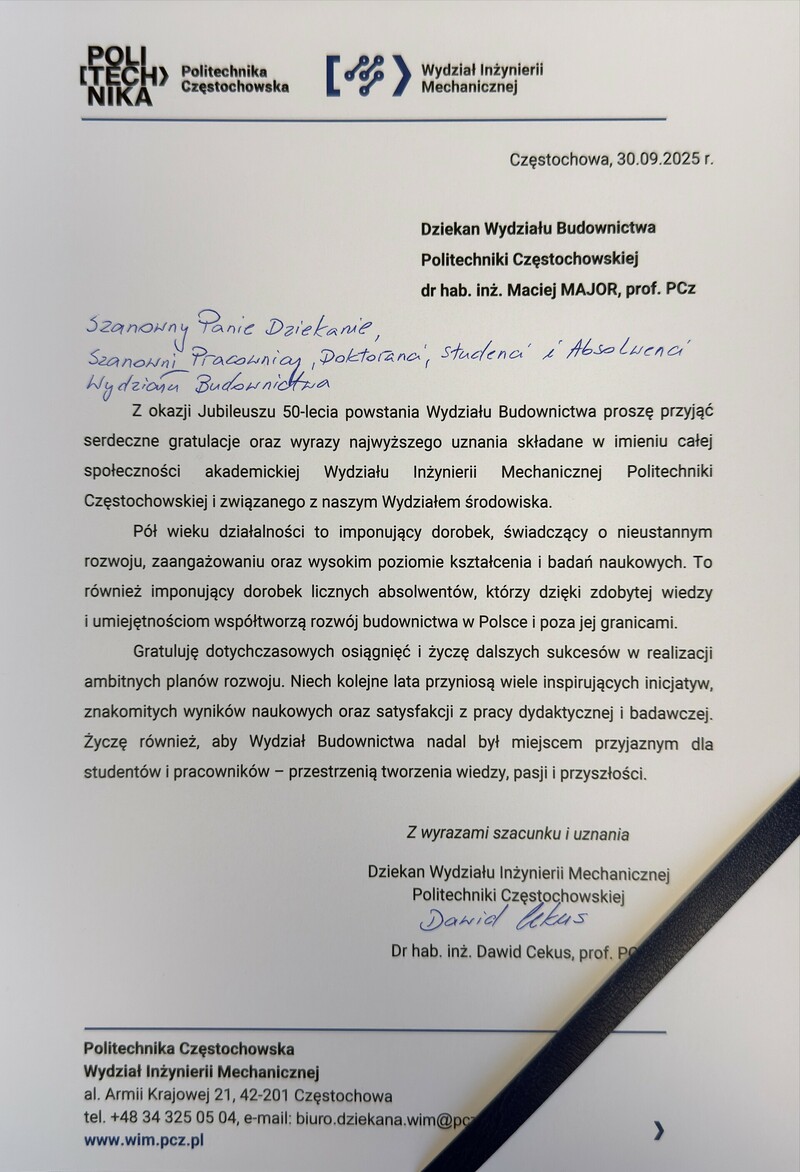 POLI
[TECH>
NIKA
Politechnika
Częstochowska
Wydział Inżynierii
Mechanicznej
Częstochowa, 30.09.2025 r.
Dziekan Wydziału Budownictwa
Politechniki Częstochowskiej
dr hab. inż. Maciej MAJOR, prof. PCz
Szanowny Panie Dziekanie,
Szanowni Pracownicy, Doktoranci, studenci i Absolwenci
Wydziału Budownictwa
Z okazji Jubileuszu 50-lecia powstania Wydziału Budownictwa proszę przyjąć
serdeczne gratulacje oraz wyrazy najwyższego uznania składane w imieniu całej
społeczności akademickiej Wydziału Inżynierii Mechanicznej Politechniki
Częstochowskiej i związanego z naszym Wydziałem środowiska.
Pół wieku działalności to imponujący dorobek, świadczący o nieustannym
rozwoju, zaangażowaniu oraz wysokim poziomie kształcenia i badań naukowych. To
również imponujący dorobek licznych absolwentów, którzy dzięki zdobytej wiedzy
i umiejętnościom współtworzą rozwój budownictwa w Polsce i poza jej granicami.
Gratuluję dotychczasowych osiągnięć i życzę dalszych sukcesów w realizacji
ambitnych planów rozwoju. Niech kolejne lata przyniosą wiele inspirujących inicjatyw,
znakomitych wyników naukowych oraz satysfakcji z pracy dydaktycznej i badawczej.
Życzę również, aby Wydział Budownictwa nadal był miejscem przyjaznym dla
studentów i pracowników – przestrzenią tworzenia wiedzy, pasji i przyszłości.
Z wyrazami szacunku i uznania
Dziekan Wydziału Inżynierii Mechanicznej
Politechniki Częstochowskiej
Dawid Cekus
Dr hab. inż. Dawid Cekus, prof.
Politechnika Częstochowska
Wydział Inżynierii Mechanicznej
al. Armii Krajowej 21, 42-201 Częstochowa
tel. +48 34 325 05 04, e-mail: biuro.dziekana.wim@pcz
www.wim.pcz.pl